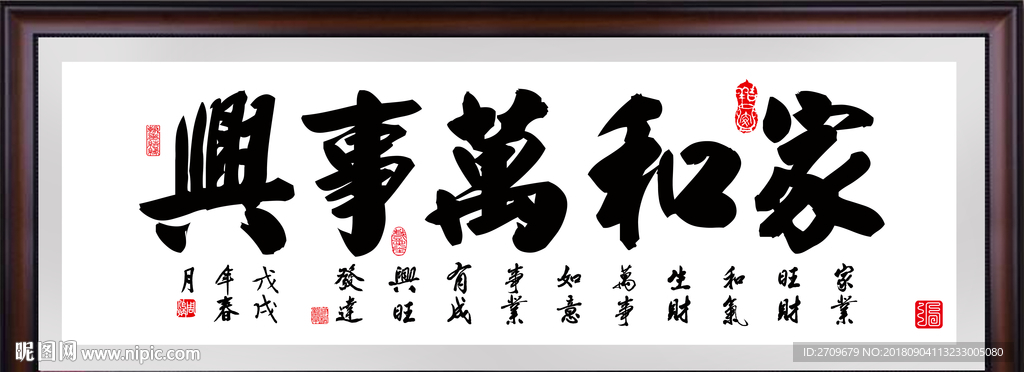 家和萬事興
家業
旺財
和氣
生財
萬事
如意
事業
有成
興旺
發達
戊戌
年春
月
昵图网 www.nipic.com
ID:2709679 NO:20180904113233005080